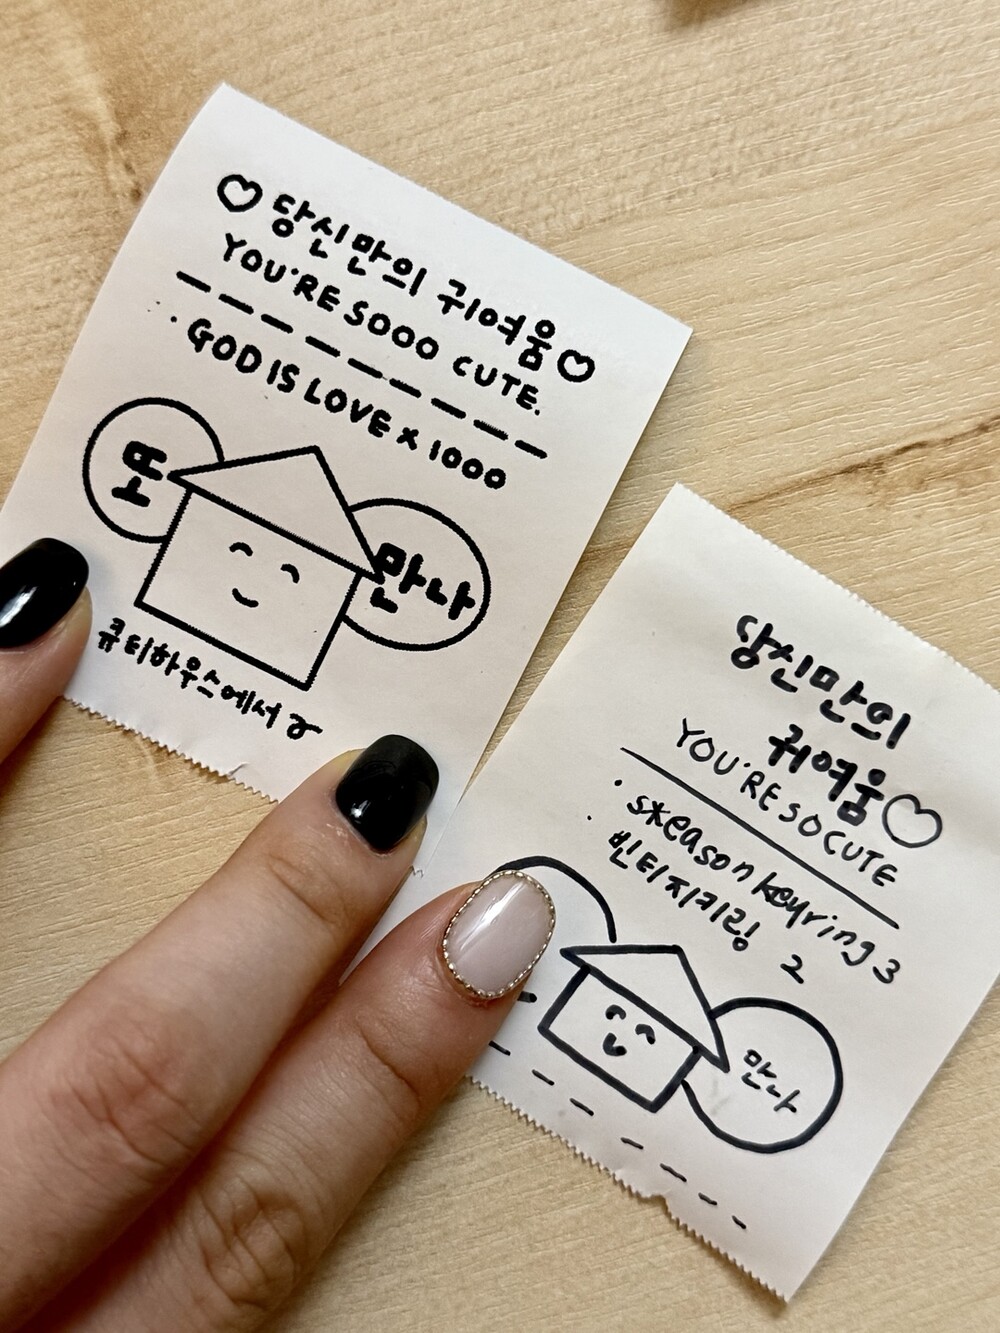 ♡ 당신만의 귀여움 ♡
YOU'RE SOOO CUTE.
· GOD IS LOVE × 1000
또 만나
큐티하우스에서
당신만의
귀여움♡
YOU'RE SO CUTE
· season keyring 3
· 빈티지키링 2
만나